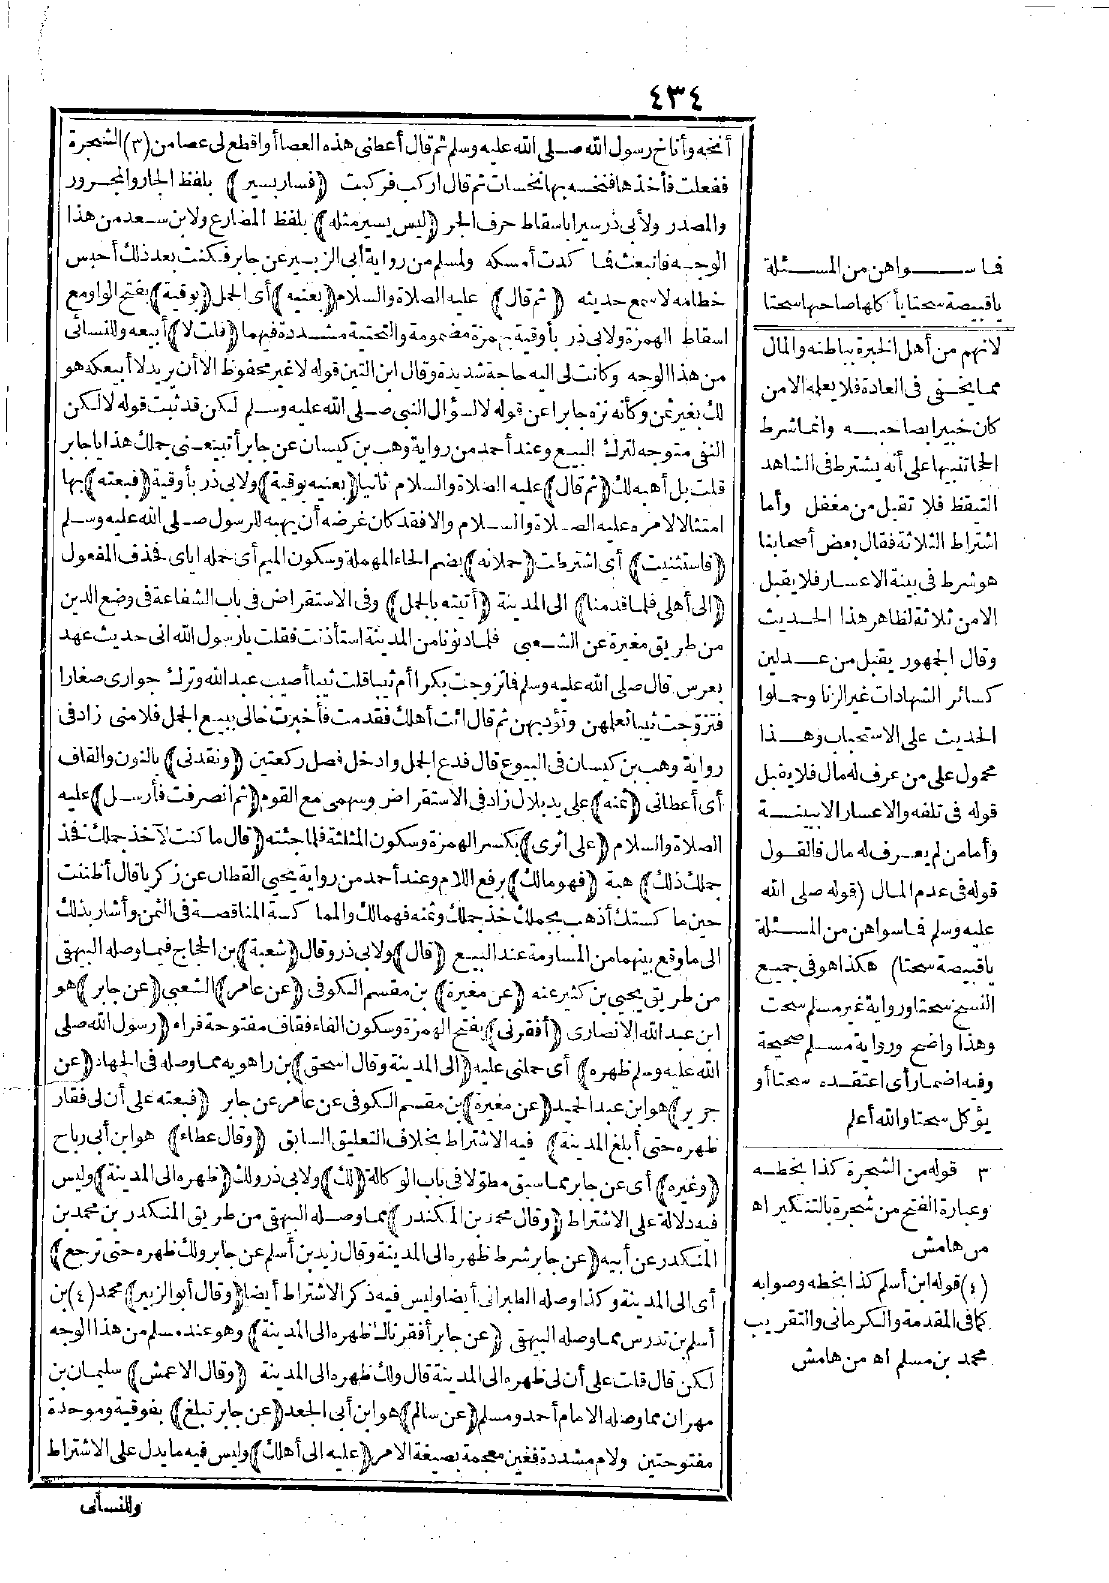 ٤٣٤
أنخه وأناخ رسول الله صلى الله عليه وسلم ثم قال أعطنى هذه العصا أو اقطع لى عصا من (٣) الشجرة
ففعلت فأخذها فنخسه بها نخسات ثم قال اركب فركبت (فسار بسير) بلفظ الجار والمجرور
والمصدر ولأبى ذر سيرا باسقاط حرف الجر (ليس يسير مثله) بلفظ المضارع ولابن سعد من هذا
الوجه فانبعث فما كدت أمسكه ولمسلم من رواية أبى الزبير عن جابر فكنت بعد ذلك أحبس
خطامه لاسمع حديثه (ثم قال) عليه الصلاة والسلام (بعنيه) أى الجمل (بوقية) بفتح الواو مع
اسقاط الهمزة ولابى ذر بأوقية بهمزة مضمومة والتحتية مشددة فيهما (قلت لا) أبيعه وللنسائى
من هذا الوجه وكانت لى اليه حاجة شديدة وقال ابن التين قوله لا غير محفوظ الا أن يريد لا أبيعكه هو
لك بغير ثمن وكأنه نزه جابرا عن قوله لا لسؤال النبى صلى الله عليه وسلم لكن قد ثبت قوله لا لكن
النفى متوجه لترك البيع وعند أحمد من رواية وهب بن كيسان عن جابر أتبيعنى جملك هذا يا جابر
قلت بل أهبه لك (ثم قال) عليه الصلاة والسلام ثانيا (بعنيه بوقية) ولابى ذر بأوقية (فبعته) بها
امتثالا لامره عليه الصلاة والسلام والافقد كان غرضه أن يهبه للرسول صلى الله عليه وسلم
(فاستثنيت) أى اشترطت (حملانه) بضم الحاء المهملة وسكون الميم أى حمله اياى فحذف المفعول
(الى أهلى فلما قدمنا) الى المدينة (أتيته بالجمل) وفى الاستقراض فى باب الشفاعة فى وضع الدين
من طريق مغيرة عن الشعبى فلما دنونا من المدينة استأذنت فقلت يا رسول الله انى حديث عهد
بعرس قال صلى الله عليه وسلم فاتزوجت بكرا أم ثيبا قلت ثيبا أصيب عبد الله وترك جوارى صغارا
فتزوجت ثيبا تعلمهن وتؤدبهن ثم قال ائت أهلك فقدمت فأخبرت خالى ببيع الجمل فلامنى زاد فى
رواية وهب بن كيسان فى البيوع قال فدع الجمل وادخل فصل ركعتين (ونقدنى) بالنون والقاف
أى أعطانى (ثمنه) على يد بلال زاد فى الاستقراض وسهمى مع القوم (ثم انصرفت فأرسل) عليه
الصلاة والسلام (على اثرى) بكسر الهمزة وسكون المثلثة فلما جئته (قال ما كنت لآخذ جملك فخذ
جملك ذلك) هبة (فهو مالك) برفع اللام وعند أحمد من رواية يحيى القطان عن زكريا قال أظننت
حين ما كستك أذهب بجملك خذ جملك وثمنه فهما لك والمما كسة المناقصة فى الثمن وأشار بذلك
الى ما وقع بينهما من المساومة عند البيع (قال) ولابى ذر وقال (شعبة) بن الحجاج فيما وصله البيهقى
من طريق يحيى بن كثير عنه (عن مغيرة) بن مقسم الكوفى (عن عامر) الشعبى (عن جابر) هو
ابن عبد الله الانصارى (أفقرنى) بفتح الهمزة وسكون الفاء فقاف مفتوحة فراء (رسول الله صلى
الله عليه وسلم ظهره) أى حملنى عليه (الى المدينة وقال اسحق) بن راهويه مما وصله فى الجهاد (عن
جرير) هو ابن عبد الحميد (عن مغيرة) بن مقسم الكوفى عن عامر عن جابر (فبعته على أن لى فقار
ظهره حتى أبلغ المدينة) فيه الاشتراط بخلاف التعليق السابق (وقال عطاء) هو ابن أبى رباح
(وغيره) أى عن جابر مما سبق مطولا فى باب الوكالة (لك) ولابى ذر ولك (ظهره الى المدينة) وليس
فيه دلالة على الاشتراط (وقال محمد بن المنكدر) مما وصله البيهقى من طريق المنكدر بن محمد بن
المنكدر عن أبيه (عن جابر شرط ظهره الى المدينة وقال زيد بن أسلم عن جابر ولك ظهره حتى ترجع)
أى الى المدينة وكذا وصله الطبرانى أيضا وليس فيه ذكر الاشتراط أيضا (وقال أبو الزبير) محمد (٤) بن
أسلم بن تدرس مما وصله البيهقى (عن جابر أفقرناك ظهره الى المدينة) وهو عند مسلم من هذا الوجه
لكن قال قلت على أن لى ظهره الى المدينة قال ولك ظهره الى المدينة (وقال الاعمش) سليمان بن
مهران مما وصله الامام أحمد ومسلم (عن سالم) هو ابن أبى الجعد (عن جابر تبلغ) بفوقية وموحدة
مفتوحتين ولام مشددة فغين معجمة بصيغة الامر (عليه الى أهلك) وليس فيه ما يدل على الاشتراط
وللنسائى
فما سواهن من المسئلة
يا قبيصة سحتا يأكلها صاحبها سحتا
لانهم من أهل الخبرة بباطنه والمال
مما يخفى فى العادة فلا يعلمه الا من
كان خبيرا بصاحبه وانما شرط
الحجا تنبيها على أنه يشترط فى الشاهد
التيقظ فلا تقبل من مغفل وأما
اشتراط الثلاثة فقال بعض أصحابنا
هو شرط فى بينة الاعسار فلا يقبل
الا من ثلاثة لظاهر هذا الحديث
وقال الجمهور يقبل من عدلين
كسائر الشهادات غير الزنا وحملوا
الحديث على الاستحباب وهذا
محمول على من عرف له مال فلا يقبل
قوله فى تلفه والاعسار الا ببينة
وأما من لم يعرف له مال فالقول
قوله فى عدم المال (قوله صلى الله
عليه وسلم فما سواهن من المسئلة
يا قبيصة سحتا) هكذا هو فى جميع
النسخ سحتا ورواية غير مسلم سحت
وهذا واضح ورواية مسلم صحيحة
وفيه اضمار أى اعتقده سحتا أو
يؤكل سحتا والله أعلم
٣ قوله من الشجرة كذا بخطه
وعبارة الفتح من شجرة بالتنكير اه
من هامش
(٤) قوله ابن أسلم كذا بخطه وصوابه
كما فى المقدمة والكرمانى والتقريب
محمد بن مسلم اه من هامش